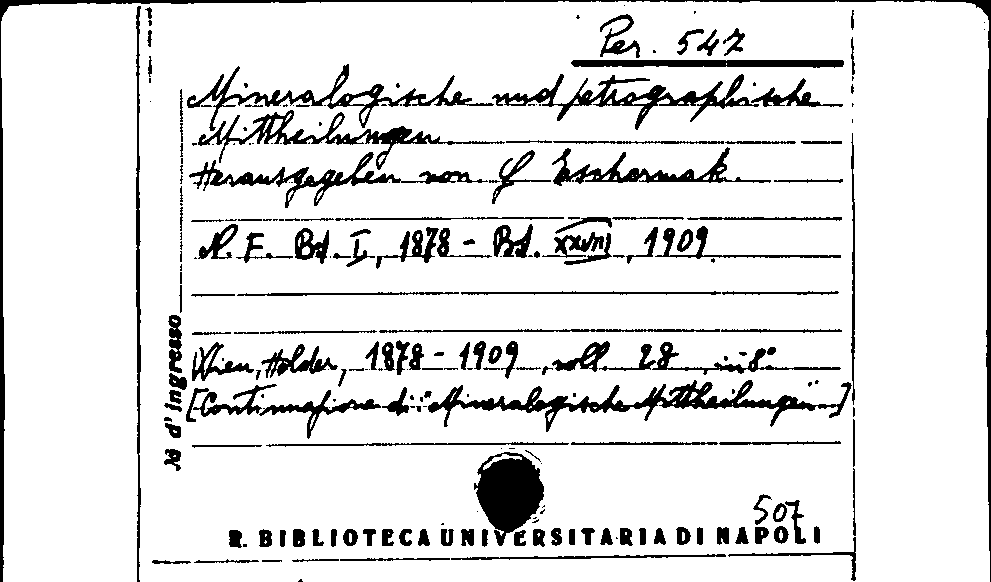 Per. 547
Mineralogische und petrographische
Mittheilungen.
Herausgegeben von. G Tschermak.
N. F. Bd. I, 1878 - Bd. XXVIII, 1909.
Wien, Holder, 1878 - 1909, voll. 28 in 8°
[Continuazione di: "Mineralogische Mittheilungen"...]
№ d'ingresso
507
R. BIBLIOTECA UNIVERSITARIA DI NAPOLI